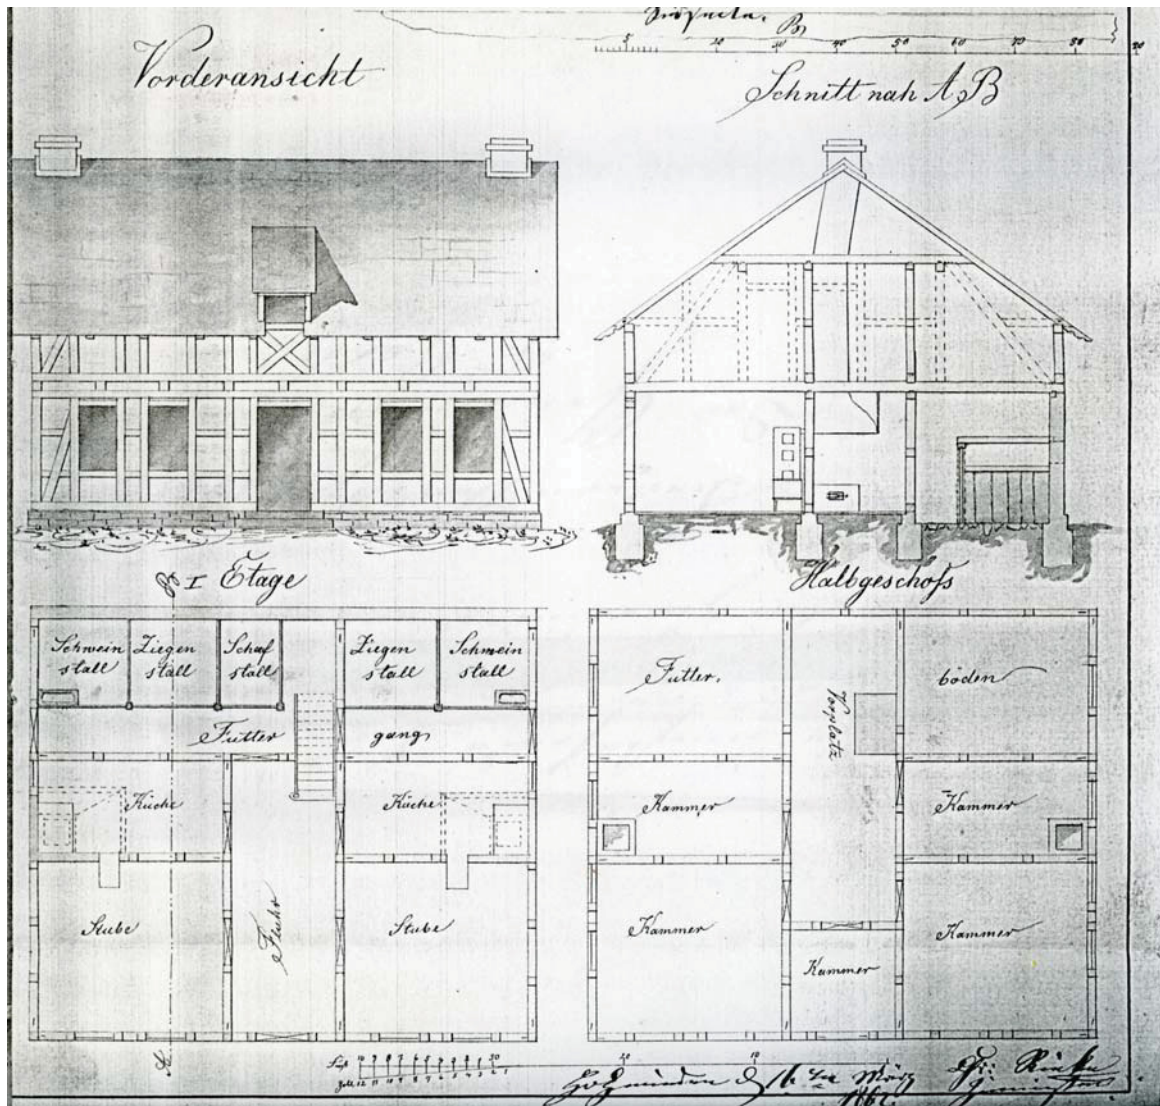 B
5 20 30 40 50 60 70 80 90
Vorderansicht
Schnitt nah A, B
B I Etage
Halbgeschoſs
Schwein
stall
Ziegen
stall
Schaf
stall
Ziegen
stall
Schwein
stall
Futter
gang
Küche
Küche
Stube
Fluhr
Stube
Futter.
böden
Vorplatz
Kammer
Kammer
Kammer
Kammer
Kammer
Fuß
Zoll
20 10
Holzminden d 16 März
1862